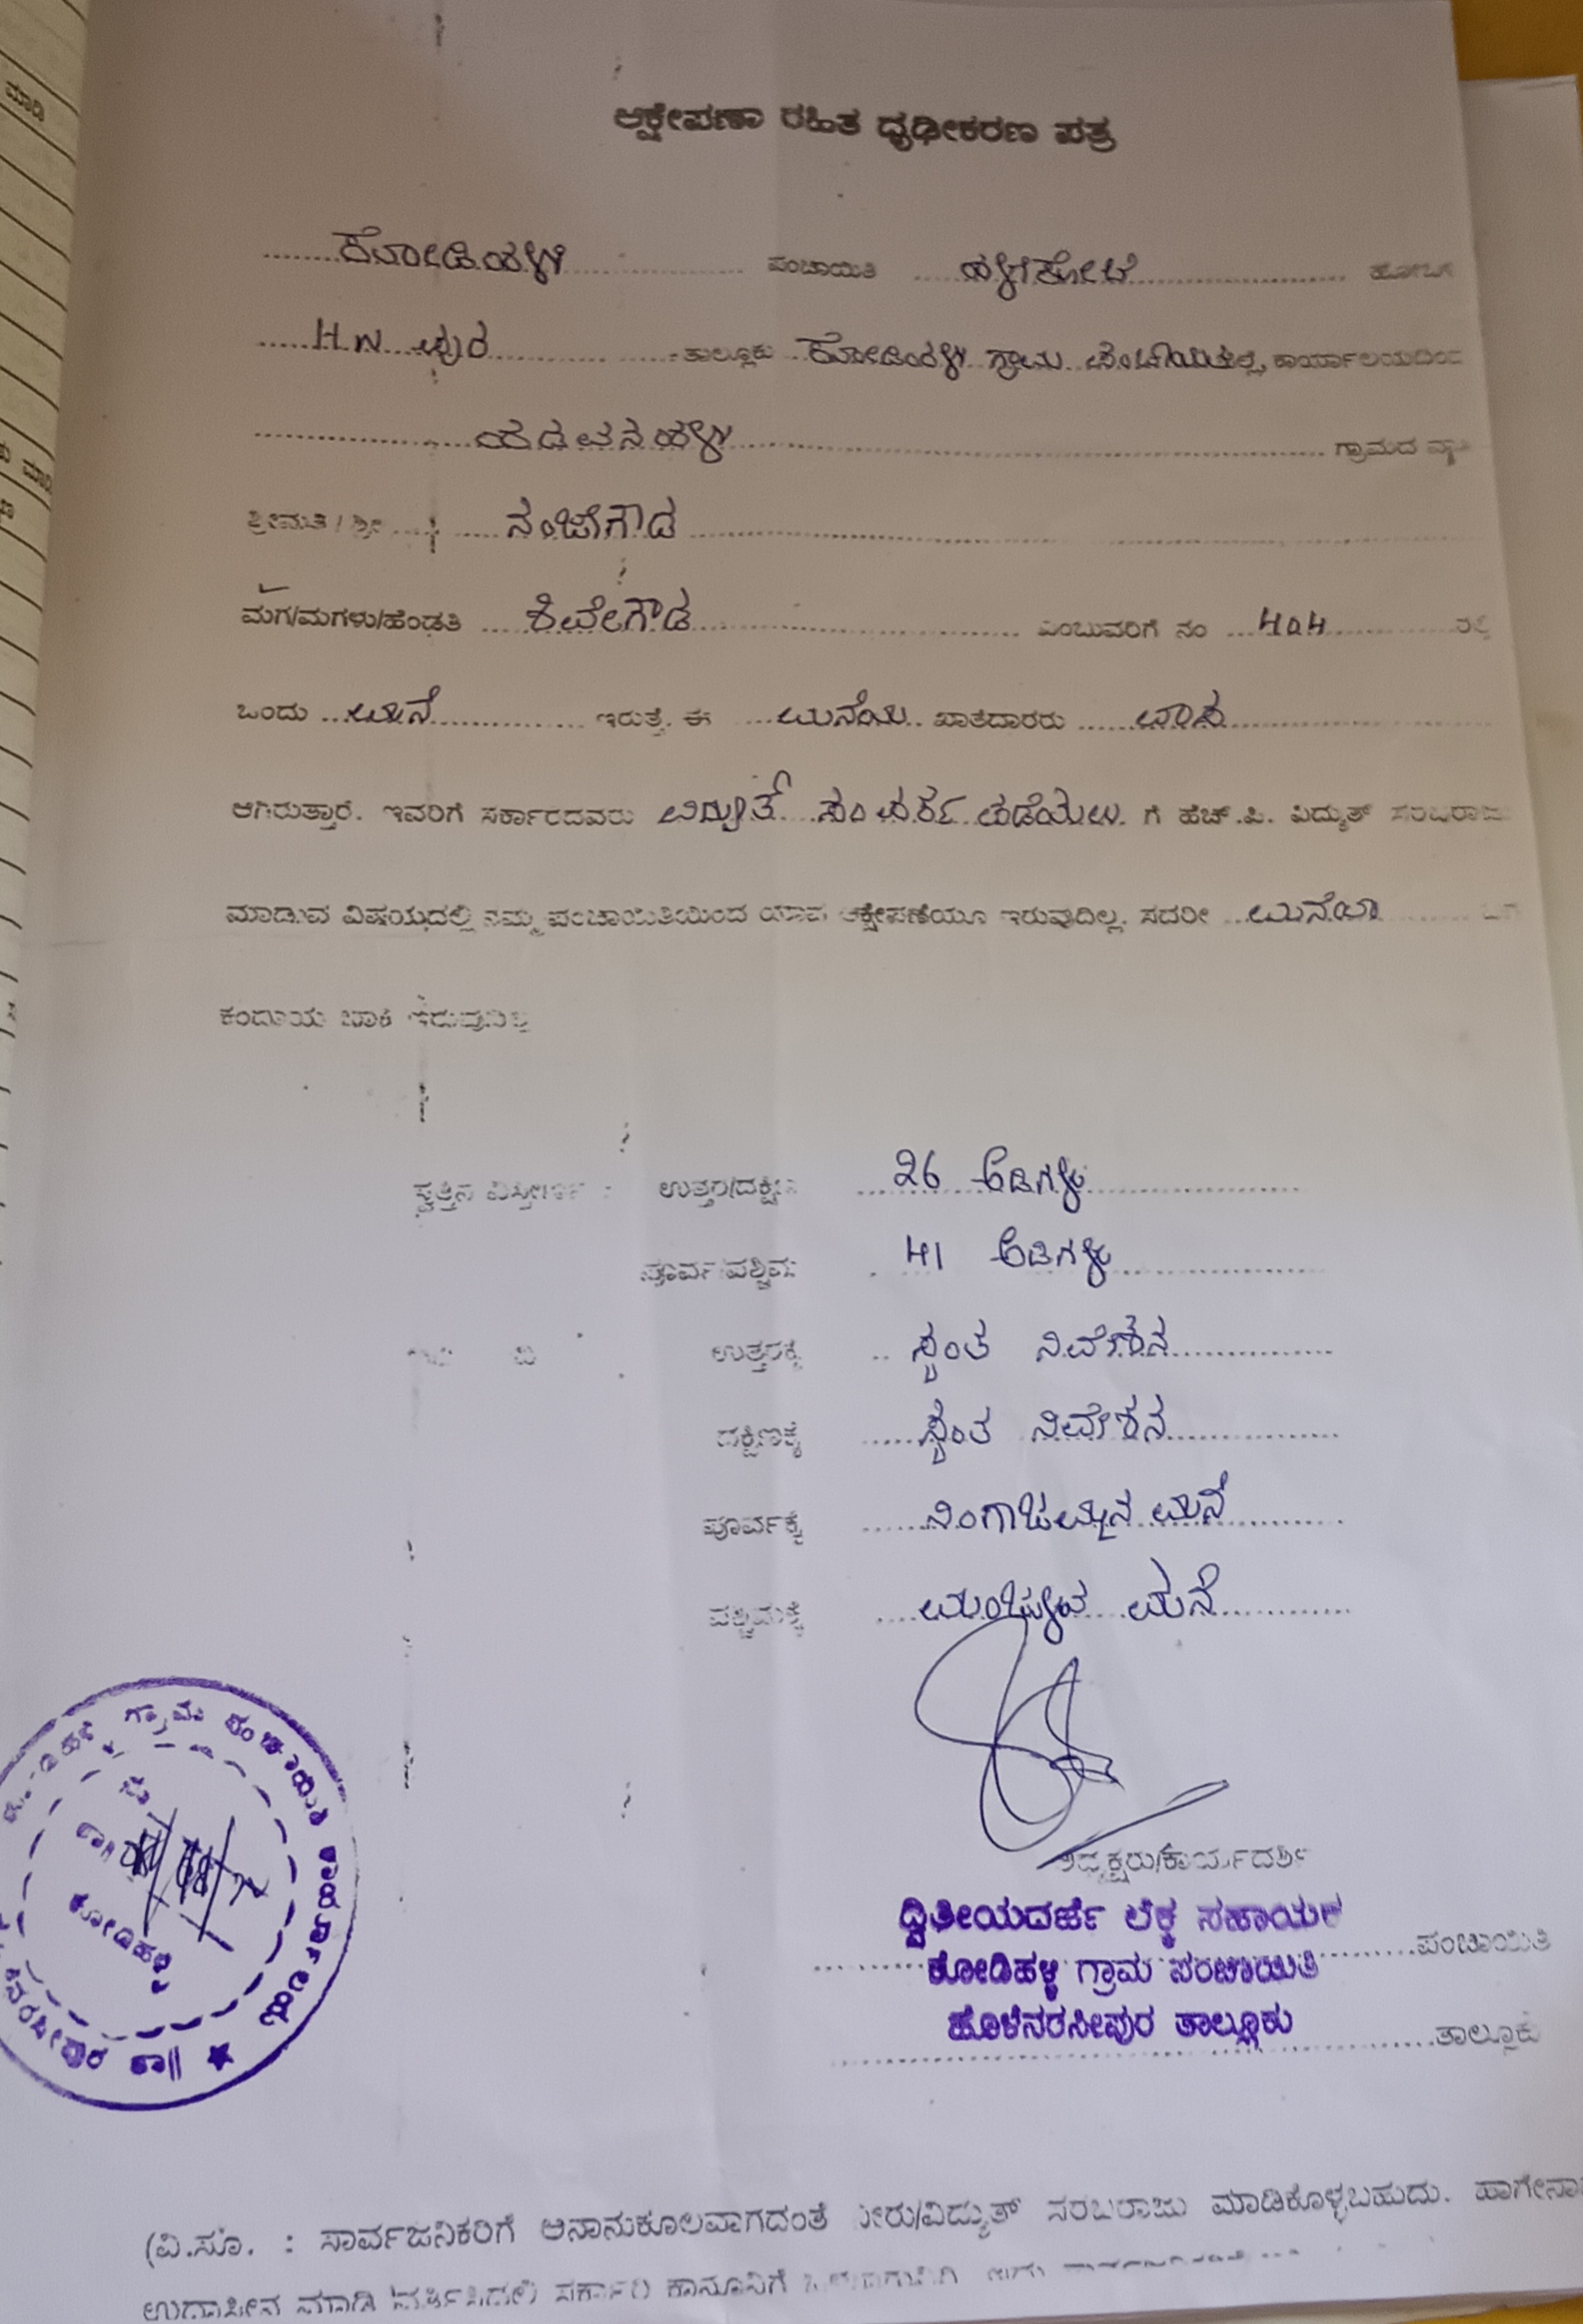 ಮಾಡಿ
ಆಕ್ಷೇಪಣಾ ರಹಿತ ದೃಢೀಕರಣ ಪತ್ರ
ಕೋಡಿಹಳ್ಳಿ ಪಂಚಾಯಿತಿ ಹಳ್ಳಿಕೋಟೆ ಹೋಬಳಿ
H.N ಪುರ ತಾಲ್ಲೂಕು ಕೋಡಿಹಳ್ಳಿ ಗ್ರಾಮ ಪಂಚಾಯಿತಿ ಕಾರ್ಯಾಲಯದಿಂದ
ಹಡವನಹಳ್ಳಿ ಗ್ರಾಮದ
ಶ್ರೀಮತಿ / ಶ್ರೀ ನಂಜೇಗೌಡ
ಮಗ/ಮಗಳು/ಹೆಂಡತಿ ಶಿವೇಗೌಡ ಎಂಬುವರಿಗೆ ನಂ 404 ರಲ್ಲಿ
ಒಂದು ಮನೆ ಇರುತ್ತೆ. ಈ ಮನೆಯ ಖಾತೆದಾರರು
ಆಗಿರುತ್ತಾರೆ. ಇವರಿಗೆ ಸರ್ಕಾರದವರು ವಿದ್ಯುತ್ ಸಂಪರ್ಕ ಪಡೆಯಲು ಗೆ ಹೆಚ್.ಪಿ. ವಿದ್ಯುತ್ ಸರಬರಾಜು
ಮಾಡುವ ವಿಷಯದಲ್ಲಿ ನಮ್ಮ ಪಂಚಾಯಿತಿಯಿಂದ ಯಾವ ಆಕ್ಷೇಪಣೆಯೂ ಇರುವುದಿಲ್ಲ. ಸದರೀ ಮನೆಯ
ಕಂದಾಯ ಬಾಕಿ ಇರುವುದಿಲ್ಲ
ಸ್ವತ್ತಿನ ವಿಸ್ತೀರ್ಣ : ಉತ್ತರ/ದಕ್ಷಿಣ 26 ಅಡಿಗಳು
ಪೂರ್ವ/ಪಶ್ಚಿಮ 41 ಅಡಿಗಳು
ಉತ್ತರಕ್ಕೆ ಸ್ವಂತ ನಿವೇಶನ
ದಕ್ಷಿಣಕ್ಕೆ ಸ್ವಂತ ನಿವೇಶನ
ಪೂರ್ವಕ್ಕೆ ನಿಂಗಾಜಮ್ಮನ ಮನೆ
ಪಶ್ಚಿಮಕ್ಕೆ ಮನೆ
ಅಧ್ಯಕ್ಷರು/ಕಾರ್ಯದರ್ಶಿ
ದ್ವಿತೀಯದರ್ಜೆ ಲೆಕ್ಕ ಸಹಾಯಕ
ಕೋಡಿಹಳ್ಳಿ ಗ್ರಾಮ ಪಂಚಾಯಿತಿ ಪಂಚಾಯಿತಿ
ಹೊಳೆನರಸೀಪುರ ತಾಲ್ಲೂಕು ತಾಲ್ಲೂಕು
ಗ್ರಾಮ ಪಂಚಾಯಿತಿ ಕಾರ್ಯಾಲಯ ★
ಕೋಡಿಹಳ್ಳಿ
(ವಿ.ಸೂ. : ಸಾರ್ವಜನಿಕರಿಗೆ ಅನಾನುಕೂಲವಾಗದಂತೆ ನೀರು/ವಿದ್ಯುತ್ ಸರಬರಾಜು ಮಾಡಿಕೊಳ್ಳಬಹುದು.
ಉದಾಸೀನ ಮಾಡಿ ವರ್ತಿಸಿದಲ್ಲಿ ಸರ್ಕಾರಿ ಕಾನೂನಿಗೆ